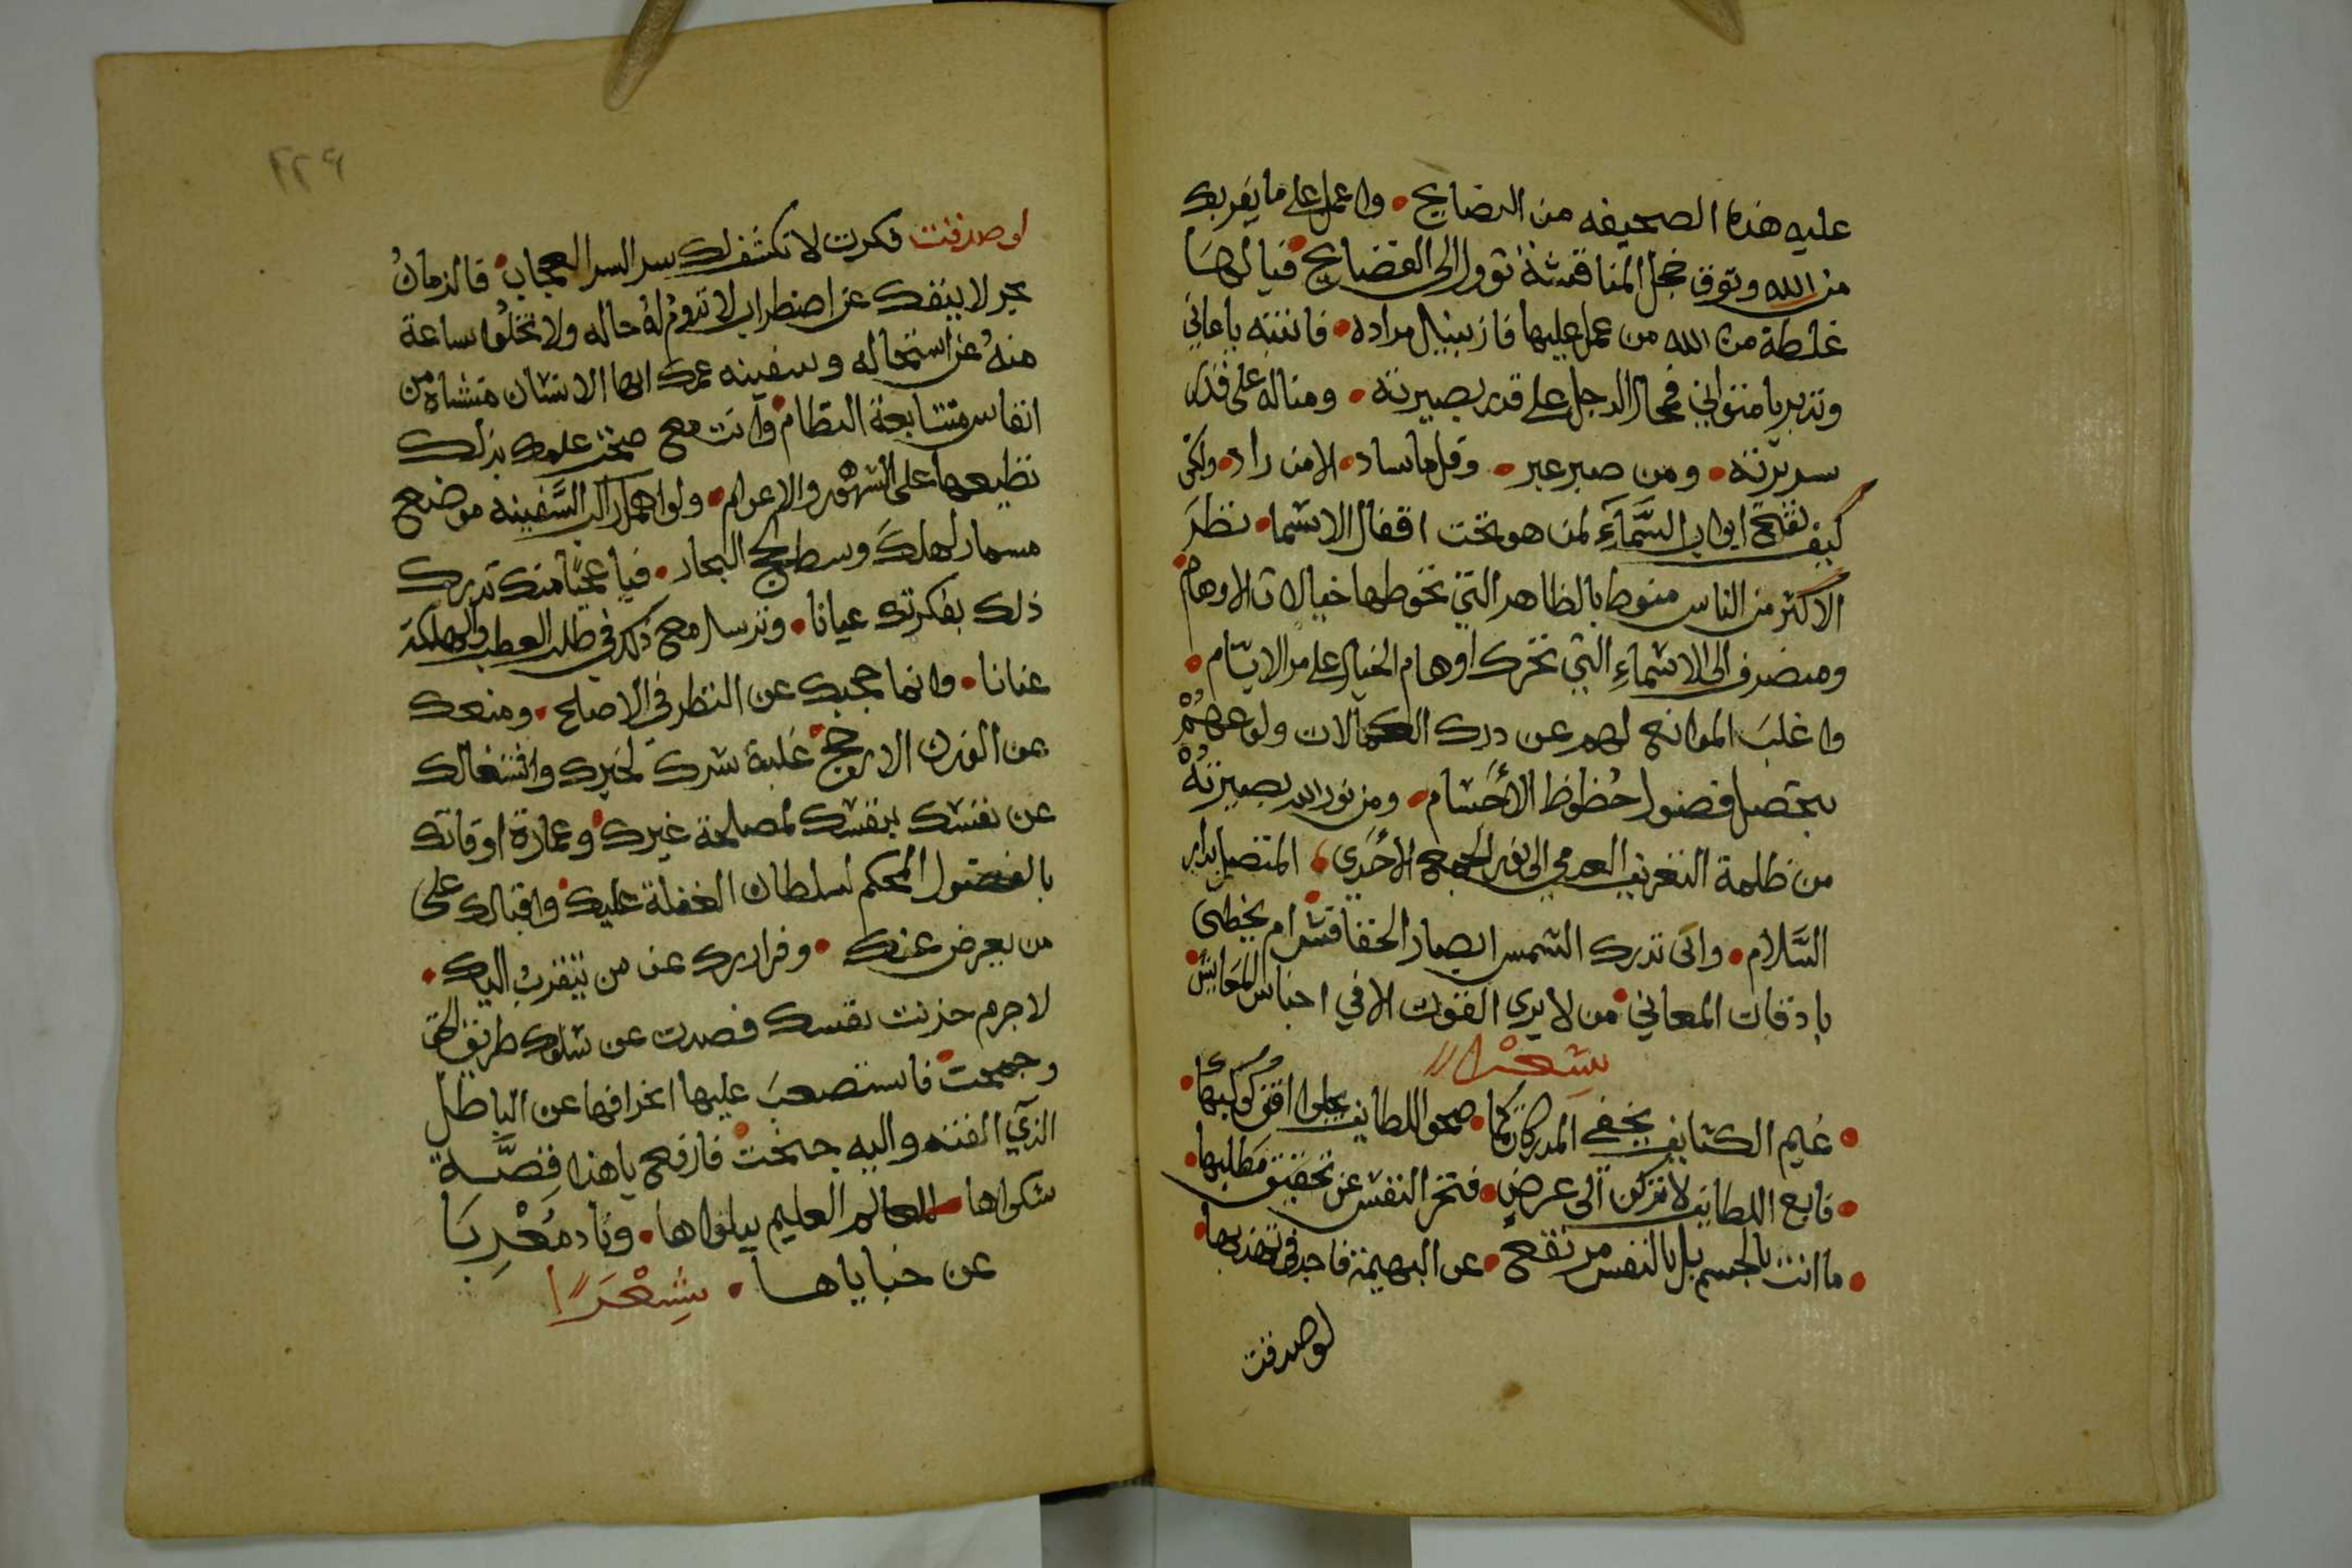 عليه هذه الصحيفه من النصايح • واعمل على ما يقربك
من الله وتوق خجل المناقشة تؤول الى الفضايح • فيا لها
غلطة من الله من عمل عليها فاز بنيل مراده • فانتبه يا عاني
وتدبر يا متواني فمحال الرجل على قدر بصيرته • ومناله على قدر
سريرته • ومن صبر عبر • وقل ما ساد • الا من راد • ولكن
كيف تفتح ابواب السَّمآءِ لمن هو تحت اقفال الاسما • نظر
الاكثر من الناس منوط بالظاهر التي تحوطها خيالات الاوهام •
ومنصرف الى الاسماءِ التي تحرك اوهام الخيال على مر الايام •
واغلب الموانع لهم عن درك الكمالات ولوعهُمْ
بتحصيل فضول حُظوظ الأجسام • ومن نور الله بصيرتهُ
من ظلمة التفريق العدمي الى نور الجمع الأحدي • المتصل بدار
السَّلام • وانى تدرك الشمس ابصار الخفافش • ام يحظى
باذقات المعاني • من لا يرى القوت الا في اجناس المَعَايش •
شعْرا
• غيم الكثايف يخفي المدركات كما • صحو اللطايف يجلوا افق كوكبها •
• فابع اللطايف لا تركن الى عرضٍ • فتخر النفس عن تحقيق مَطلبها •
• ما انت بالجسم بل بالنفس مرتفع • عن البهيمة فاجد في تهذيبها •
لو صدقت
٢٢٩
لو صدقت فكرت لا نكشف لك سر السر العجاب • فالزمانُ
بحر لا ينفك عن اضطراب لا تدومُ لهُ حاله ولا تخلوُا ساعة
منهُ عن استحاله وسفينه عمرك ايها الانسان منشاه من
انفاس متتابعة النظام • وانت مع صحت علمك بذلك
تظيعها على الشهور والاعوام • ولو اهمل راكب السَّفينه موضع
مسمار لهلك وسط لجج البحار • فيا عجبًا منك تدرك
ذلك بفكرتك عيانا • وترسل مع ذلك في طلب العطب والهلكة
عنانا • وانما حجبك عن النظر في الاصلح • ومنعك
عن الفرك الارجح • غلبة شرك لخيرك واشتغالك
عن نفسك بنفسك لمصلحة غيرك • وعمارة اوقاتك
بالفضول المحكم لسلطان الغفلة عليك • واقبالك على
من يعرض عنك • وفرارك عن من يتقرب اليك •
لا جرم حزنت نفسك فصدت عن سلوك طريق الحق
وجمحت • فاستصعب عليها انحرافها عن الباطل
الذي الفته واليه جنحت • فارفع يا هذا قِصَّة
شكواها • للعالم العليم ببلواها • وناد مُعْرِبَا
عن خباياها • شِعْرًا